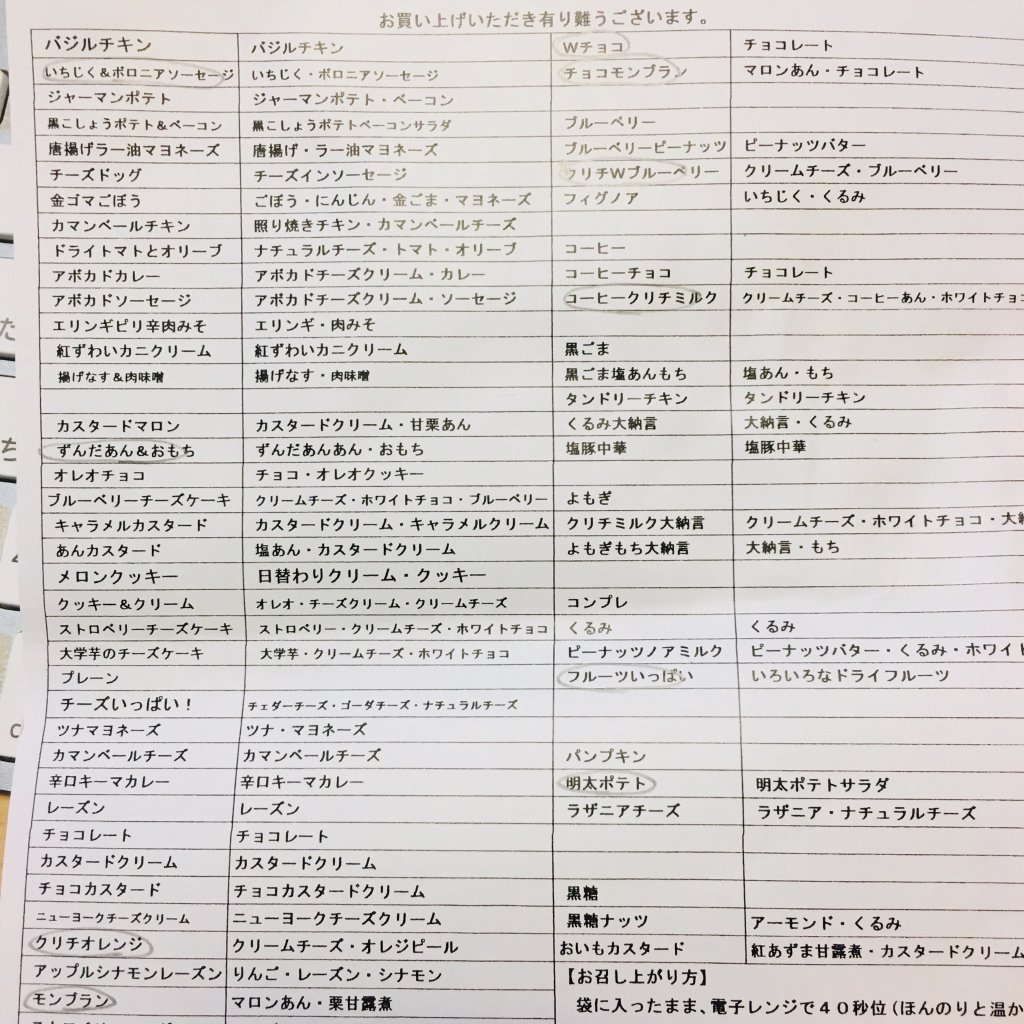 お買い上げいただき有り難うございます。
バジルチキン バジルチキン Wチョコ チョコレート
いちじく＆ボロニアソーセージ いちじく・ボロニアソーセージ チョコモンブラン マロンあん・チョコレート
ジャーマンポテト ジャーマンポテト・ベーコン
黒こしょうポテト＆ベーコン 黒こしょうポテトベーコンサラダ ブルーベリー
唐揚げラー油マヨネーズ 唐揚げ・ラー油マヨネーズ ブルーベリーピーナッツ ピーナッツバター
チーズドッグ チーズインソーセージ クリチWブルーベリー クリームチーズ・ブルーベリー
金ゴマごぼう ごぼう・にんじん・金ごま・マヨネーズ フィグノア いちじく・くるみ
カマンベールチキン 照り焼きチキン・カマンベールチーズ
ドライトマトとオリーブ ナチュラルチーズ・トマト・オリーブ コーヒー
アボカドカレー アボカドチーズクリーム・カレー コーヒーチョコ チョコレート
アボカドソーセージ アボカドチーズクリーム・ソーセージ コーヒークリチミルク クリームチーズ・コーヒーあん・ホワイトチョコ
エリンギピリ辛肉みそ エリンギ・肉みそ
紅ずわいカニクリーム 紅ずわいカニクリーム 黒ごま
揚げなす＆肉味噌 揚げなす・肉味噌 黒ごま塩あんもち 塩あん・もち
タンドリーチキン タンドリーチキン
カスタードマロン カスタードクリーム・甘栗あん くるみ大納言 大納言・くるみ
ずんだあん＆おもち ずんだあんあん・おもち 塩豚中華 塩豚中華
オレオチョコ チョコ・オレオクッキー
ブルーベリーチーズケーキ クリームチーズ・ホワイトチョコ・ブルーベリー よもぎ
キャラメルカスタード カスタードクリーム・キャラメルクリーム クリチミルク大納言 クリームチーズ・ホワイトチョコ・大納
あんカスタード 塩あん・カスタードクリーム よもぎもち大納言 大納言・もち
メロンクッキー 日替わりクリーム・クッキー
クッキー＆クリーム オレオ・チーズクリーム・クリームチーズ コンプレ
ストロベリーチーズケーキ ストロベリー・クリームチーズ・ホワイトチョコ くるみ くるみ
大学芋のチーズケーキ 大学芋・クリームチーズ・ホワイトチョコ ピーナッツノアミルク ピーナッツバター・くるみ・ホワイト
プレーン フルーツいっぱい いろいろなドライフルーツ
チーズいっぱい！ チェダーチーズ・ゴーダチーズ・ナチュラルチーズ
ツナマヨネーズ ツナ・マヨネーズ
カマンベールチーズ カマンベールチーズ パンプキン
辛口キーマカレー 辛口キーマカレー 明太ポテト 明太ポテトサラダ
レーズン レーズン ラザニアチーズ ラザニア・ナチュラルチーズ
チョコレート チョコレート
カスタードクリーム カスタードクリーム
チョコカスタード チョコカスタードクリーム 黒糖
ニューヨークチーズクリーム ニューヨークチーズクリーム 黒糖ナッツ アーモンド・くるみ
クリチオレンジ クリームチーズ・オレジピール おいもカスタード 紅あずま甘露煮・カスタードクリーム
アップルシナモンレーズン りんご・レーズン・シナモン 【お召し上がり方】
モンブラン マロンあん・栗甘露煮 袋に入ったまま、電子レンジで４０秒位（ほんのりと温か